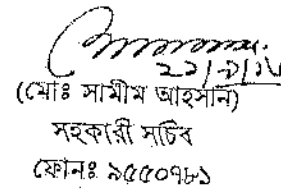 (মোঃ সামীম আহসান)
সহকারী সচিব
ফোনঃ ৯৫৫০৭৮১